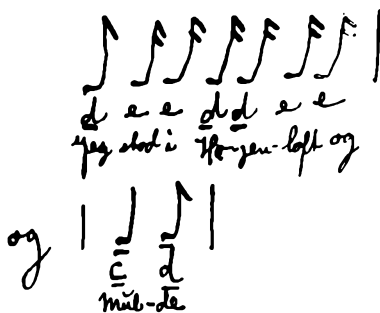 d e e d d e e
Jeg stod i Hø-jen-loft og
og
c d
mŭl-de